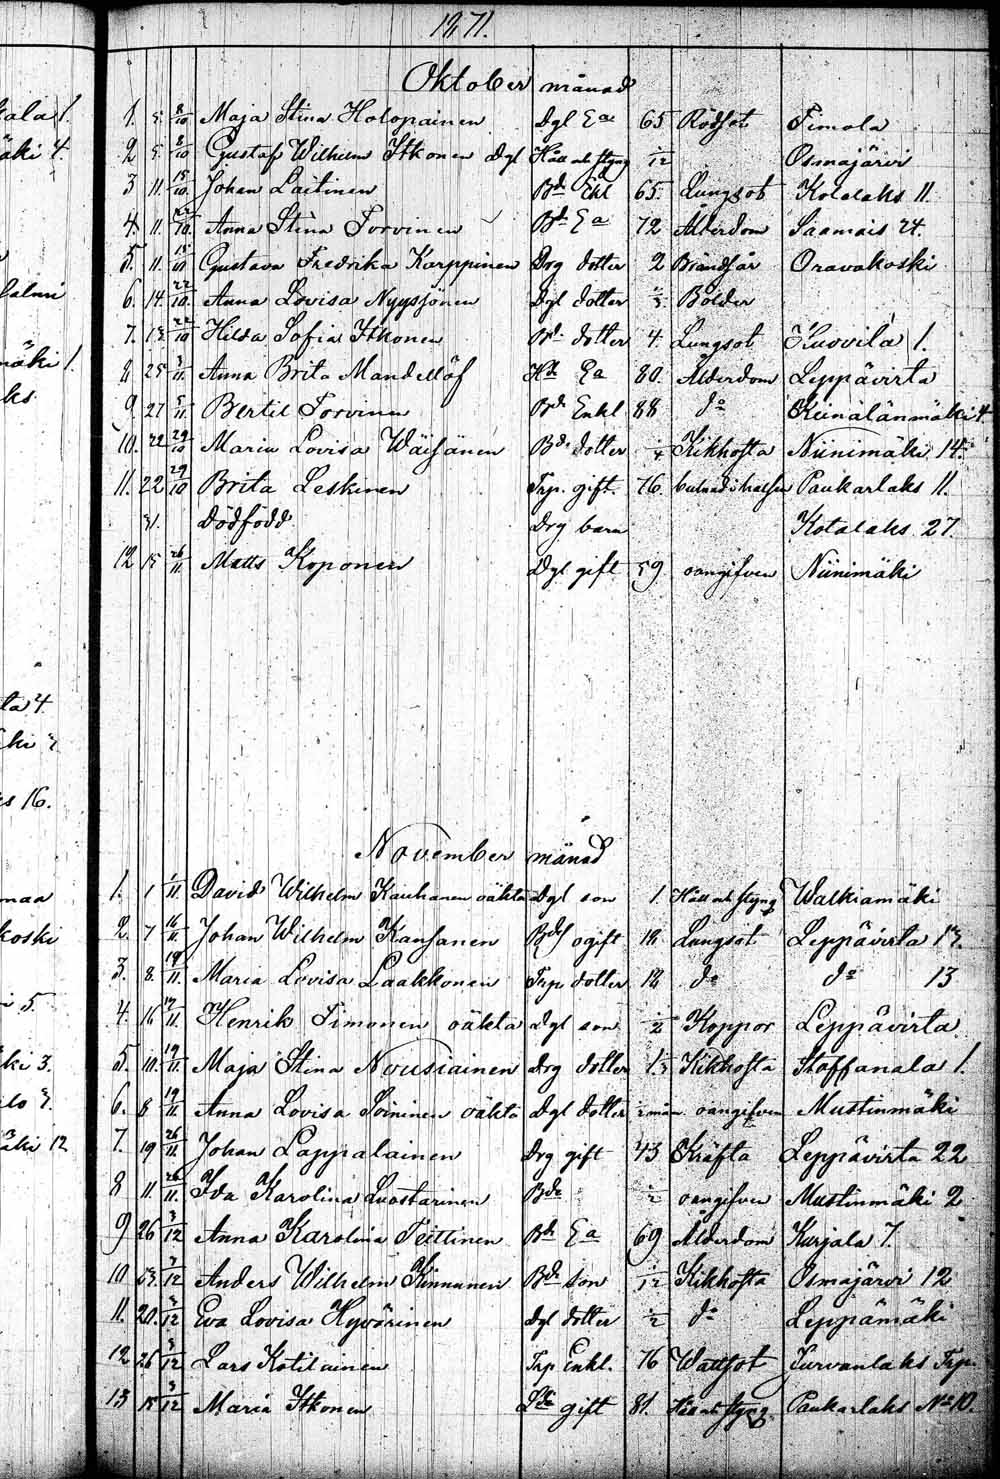 1871.
Oktober månad
1. 5 8/10 Maja Stina Holopainen Dgl Ea 65 Rödsot Timola
2 5 8/10 Gustaf Wilhelm Itkonen Dgl Håll och styng 1/12 Osmajärvi
3 11 15/10 Johan Laitinen Bd Ekl 65 Lungsot Kotalaks 11.
4 11 22/10 Anna Stina Torvinen Bd Ea 72 Ålderdom Saamais 24.
5. 11. 15/10 Gustava Fredrika Karppinen Drg dotter 2 Oravakoski
6. 14 22/10 Anna Lovisa Nyyssönen Dgl dotter Bölder
7. 13 22/10 Hilda Sofia Itkonen Bd dotter 4 Lungsot Kuovila 1.
8 25 3/11 Anna Brita Mandellöf Ea 80. Ålderdom Leppävirta
9 27 5/11 Bertil Torvinen Bd Enkl 88 do
10. 22 29/10 Maria Lovisa Wäisänen Bd dotter 1/4 Kikhosta Niinimäki 14.
11. 22 29/10 Brita Leskinen Trp. gift. 76 Paukarlaks 11.
31. dödfödd Drg barn Kotalaks 27.
12 15 26/11 Matts Koponen Dgl gift 59 oangifven Niinimäki
November månad
1. 1 1/11 David Wilhelm Kauhanen oäkta Dgl son 1. Håll och styng Walkiamäki
2. 7 16/11 Johan Wilhelm Kansanen Bds ogift 18 Lungsot Leppävirta 13.
3. 8 19/11 Maria Lovisa Laakkonen Trp dotter 18 do do 13
4. 16 /11 Henrik Timonen oäkta Dgl son 1/2 Koppor Leppävirta
5. 10. 19/11 Maja Stina Nousiainen Drg dotter Kikhosta Staffanala 1.
6. 8 19/11 Anna Lovisa Soininen oäkta Dgl dotter oangifven Mustinmäki
7. 19 26/11 Johan Lappalainen Drg gift 43 Kräfta Leppävirta 22
8 11. 26/11 Ida Karolina Luostarinen Bde 1/2 oangifven Mustinmäki 2
9 26 3/12 Anna Karolina Teittinen Bd Ea 69 Ålderdom Karjala 7.
10 3/12 Anders Wilhelm Kinnunen Bde son 1/12 Kikhosta Osmajärvi 12
11. 20. 3/12 Eva Lovisa Hyvärinen Dgl dotter 1/2 do Leppämäki
12 26 3/12 Lars Kotilainen Trp Enkl. 76 Wattsot Jurvanlaks Trp.
13 15 3/12 Maria Itkonen gift 81. Håll och styng Paukarlaks No 10.